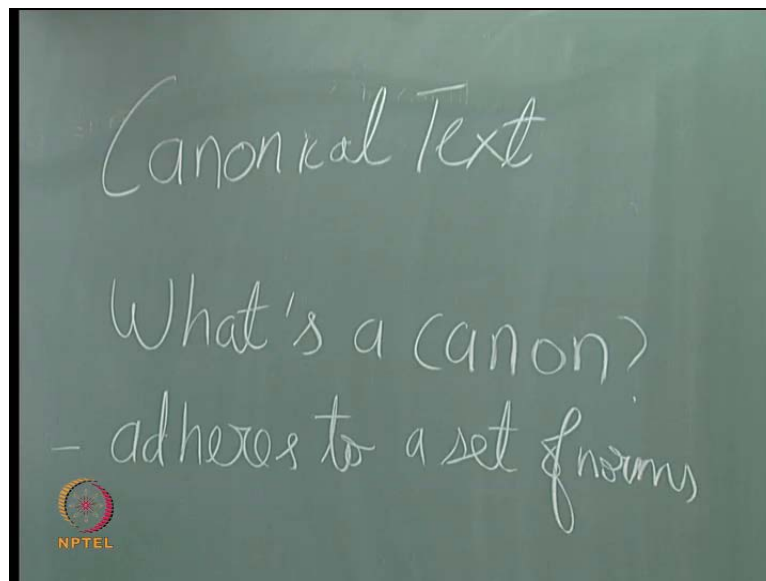 Canonical Text
What's a Canon?
- adheres to a set of norms
NPTEL